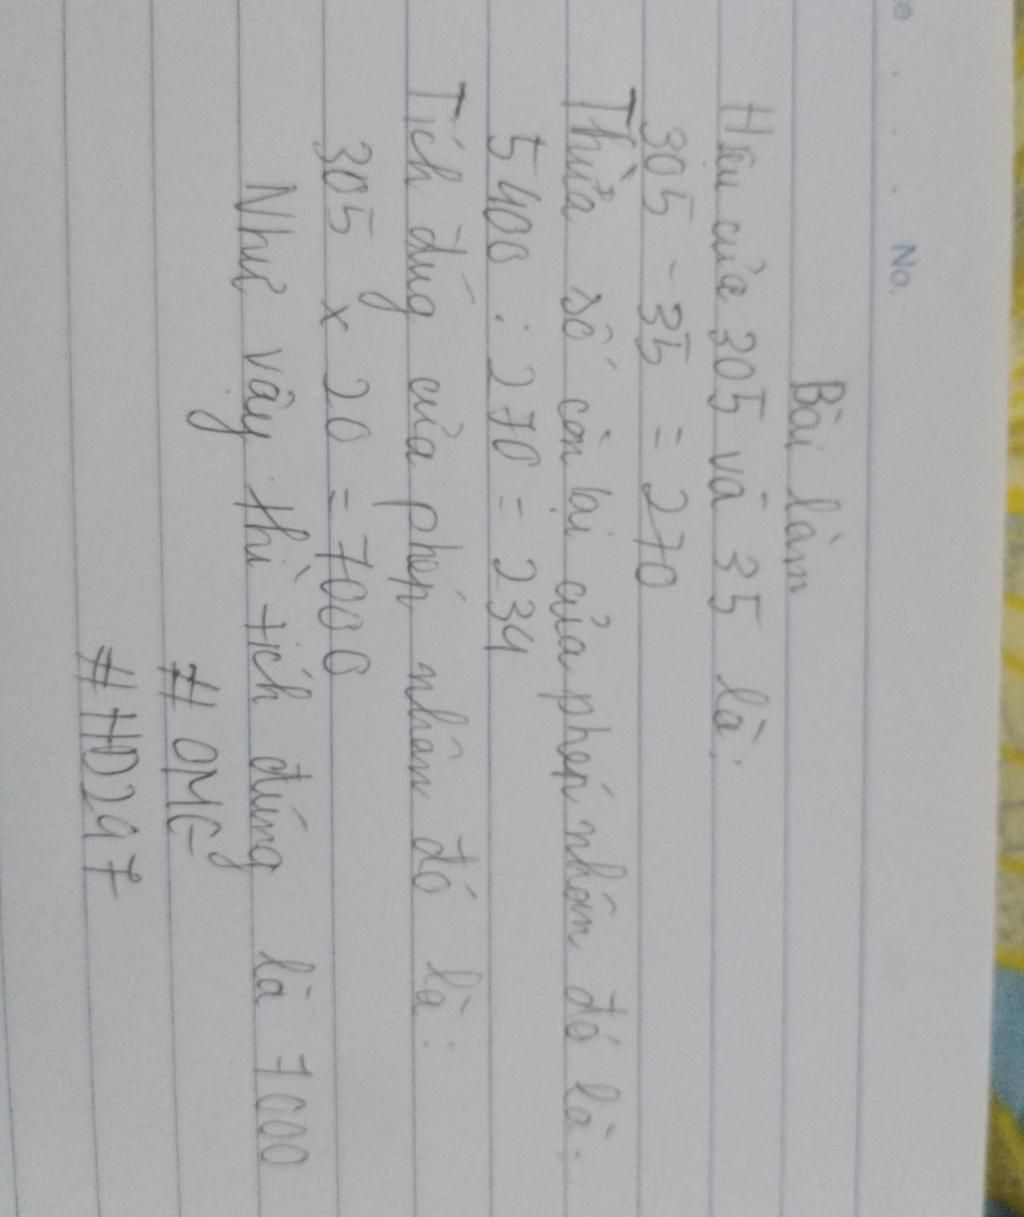 No.
Bài làm
Hiệu của 305 và 35 là:
305 - 35 = 270
Thừa số còn lại của phép nhân đó là:
5400 : 270 = 234
Tích đúng của phép nhân đó là:
305 x 20 = 7000
Như vậy thì tích đúng là 7000
# OMG
#HD247